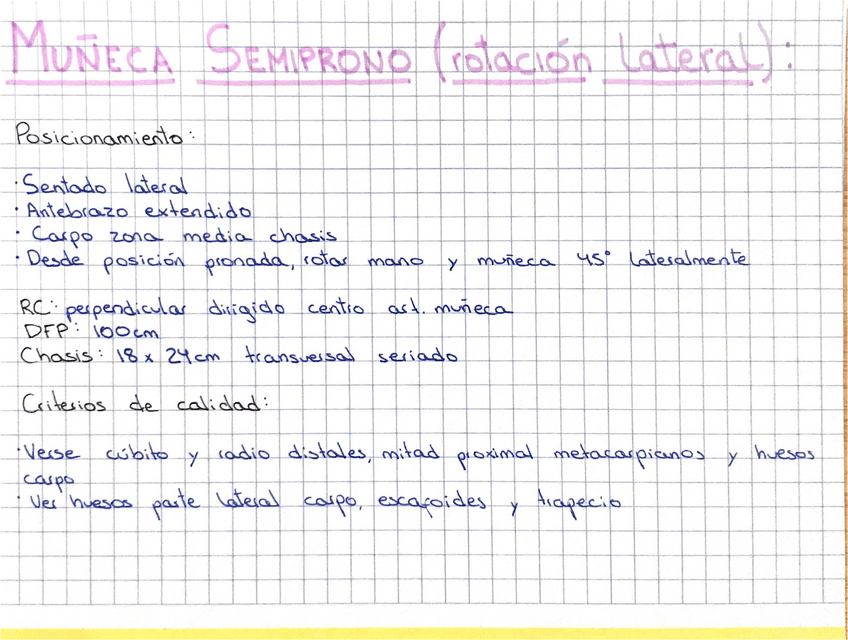 MUÑECA SEMIPRONO (rotación lateral):
Posicionamiento:
· Sentado lateral
· Antebrazo extendido
· Carpo zona media chasis
· Desde posición pronada, rotar mano y muñeca 45° lateralmente
RC: perpendicular dirigido centro art. muñeca
DFP: 100cm
Chasis: 18 x 24cm transversal seriado
Criterios de calidad:
· Verse cúbito y radio distales, mitad proximal metacarpianos y huesos
carpo
· Ver huesos parte lateral carpo, escafoides y trapecio